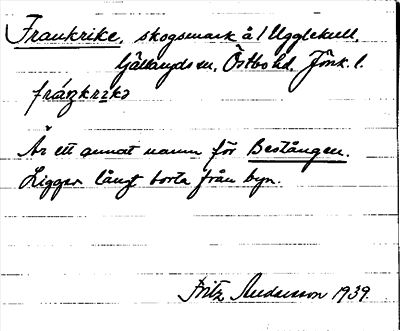 Frankrike, skogsmark å 1 Ugglekull,
Gällaryds sn, Östbo hd. Jönk. l.
fráŋkrikə
Är ett annat namn för Beståugen.
Ligger långt borta från byn.
Fritz Andersson 1939.